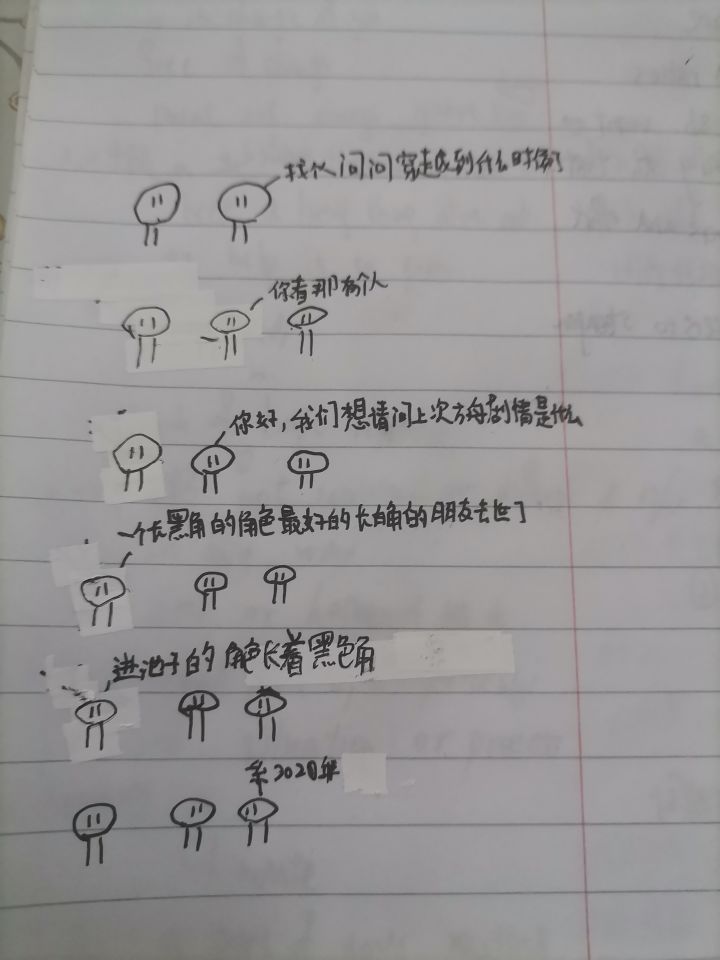 找个人问问穿越到什么时候了
你看那有个人
你好,我们想请问上次方舟剧情是什么
一个长黑角的角色最好的长白角的朋友去世了
进池子的角色长着黑色角
2020年